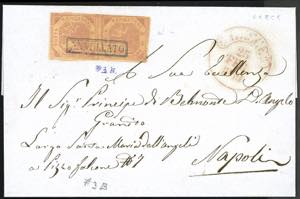 ANNULLATO
A Sua Eccellenza
Il Sig. Principe di Belmonte D'Angelo
Granito
Largo Santa Maria dell'angeli
a Pizzofalcone N° 7
Napoli
#3B